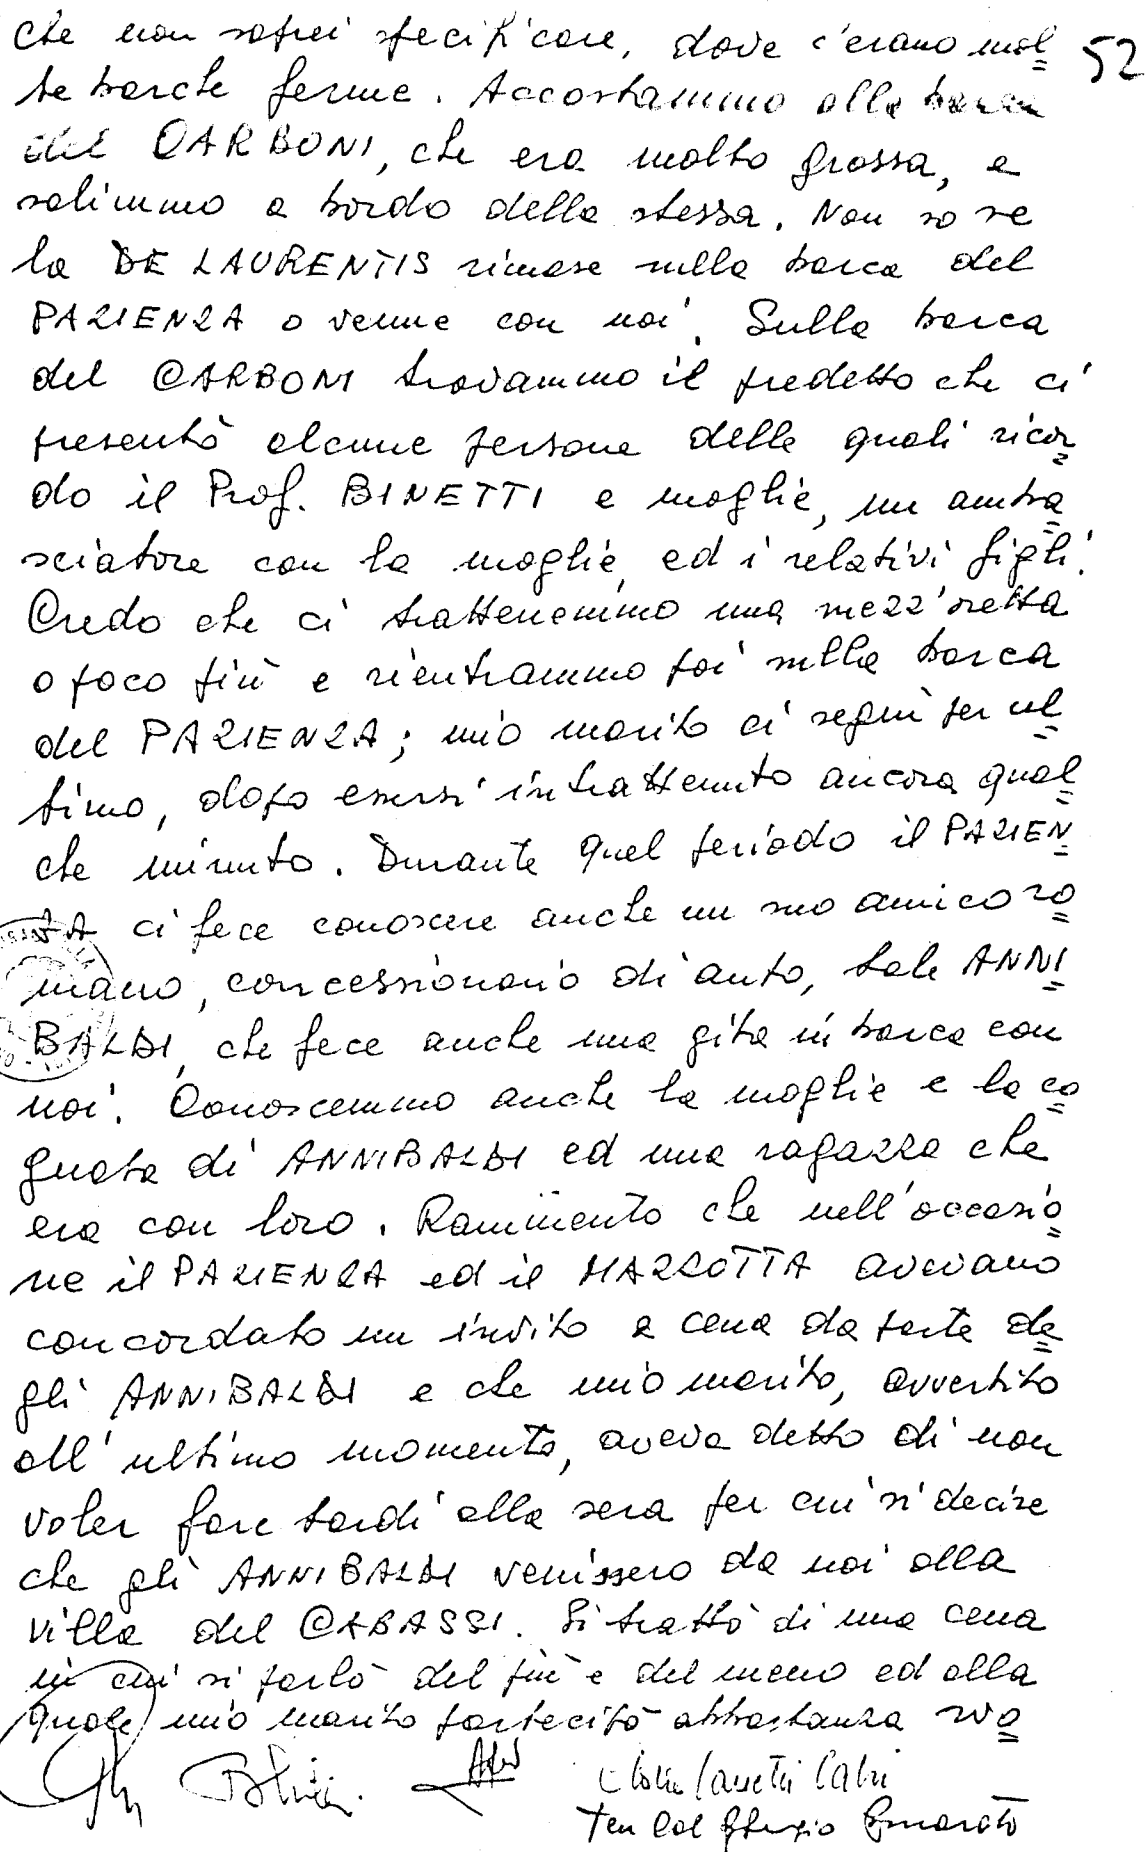 che non saprei specificare, dove c'erano mol= 52
te barche ferme. Accostammo alla barca
del CARBONI, che era molto grossa, e
salimmo a bordo della stessa. Non so se
la DE LAURENTIS rimase sulla barca del
PAZIENZA o venne con noi. Sulla barca
del CARBONI trovammo il predetto che ci
presentò alcune persone delle quali ricor=
do il Prof. BINETTI e moglie, un amba=
sciatore con la moglie ed i relativi figli.
Credo che ci trattenemmo una mezz'oretta
o poco più e rientrammo poi sulla barca
del PAZIENZA; mio marito ci seguì per ul=
timo, dopo essersi intrattenuto ancora qual=
che minuto. Durante quel periodo il PAZIEN=
ZA ci fece conoscere anche un suo amico ro=
mano, concessionario di auto, tale ANNI=
BALDI, che fece anche una gita in barca con
noi. Conoscemmo anche la moglie e la co=
gnata di ANNIBALDI ed una ragazza che
era con loro. Rammento che nell'occasio=
ne il PAZIENZA ed il MAZZOTTA avevano
concordato un invito a cena da parte de=
gli ANNIBALDI e che mio marito, avvertito
all'ultimo momento, aveva detto di non
voler fare tardi alla sera per cui si decise
che gli ANNIBALDI venissero da noi alla
villa del CABASSI. Si trattò di una cena
in cui si parlò del più e del meno ed alla
quale mio marito partecipò abbastanza svo=
Clara Canetti Calvi
Ten Col